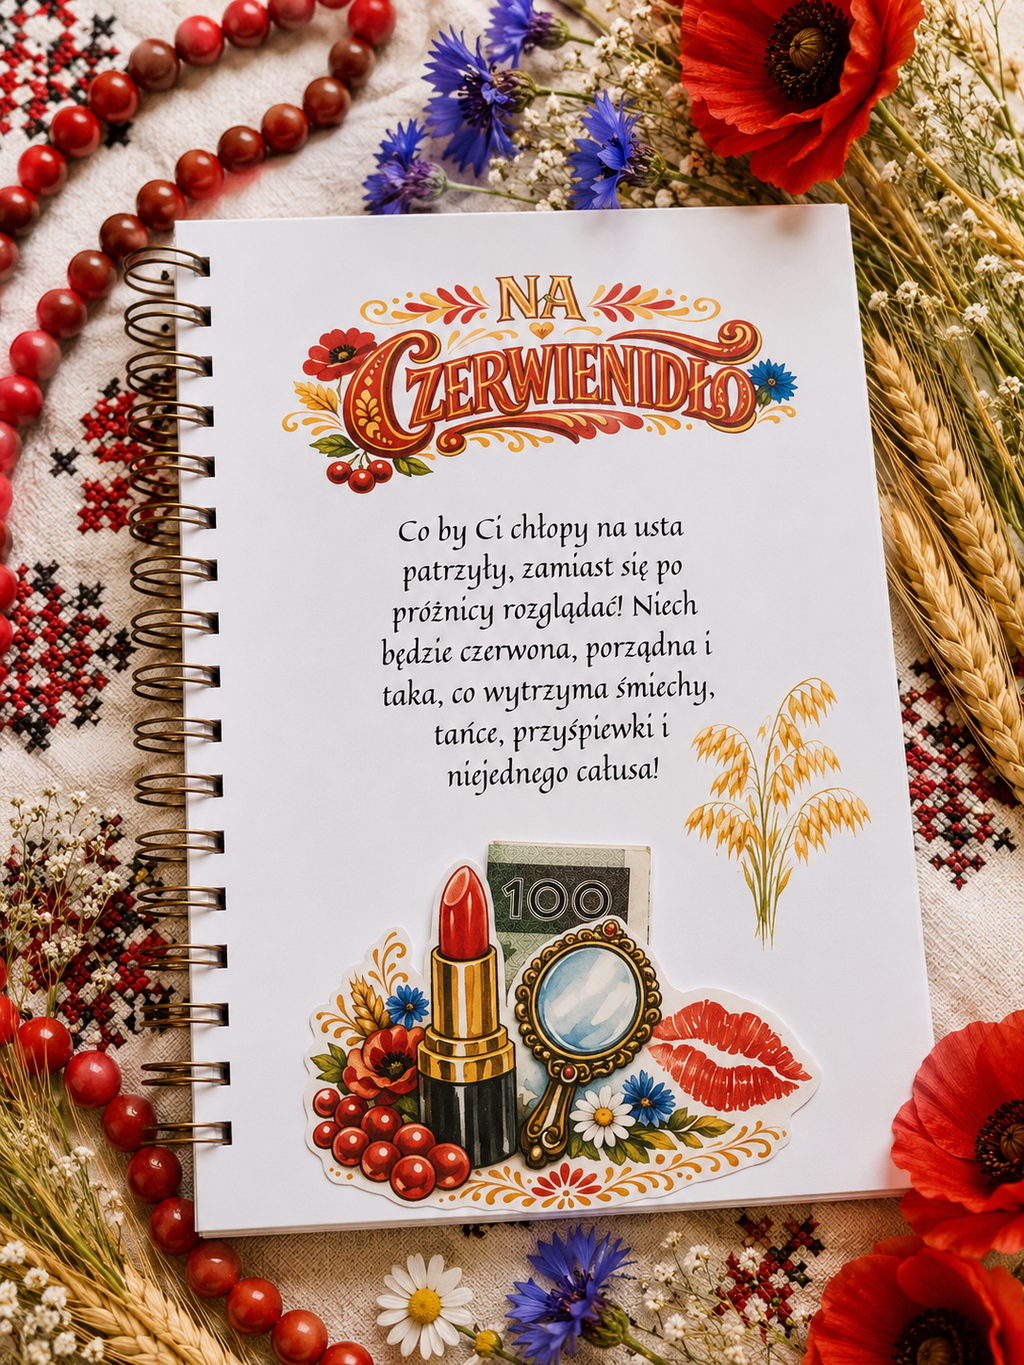 NA
CZERWIENIDŁO
Co by Ci chłopy na usta
patrzyły, zamiast się po
próżnicy rozglądać! Niech
będzie czerwona, porządna i
taka, co wytrzyma śmiechy,
tańce, przyśpiewki i
niejednego całusa!
100